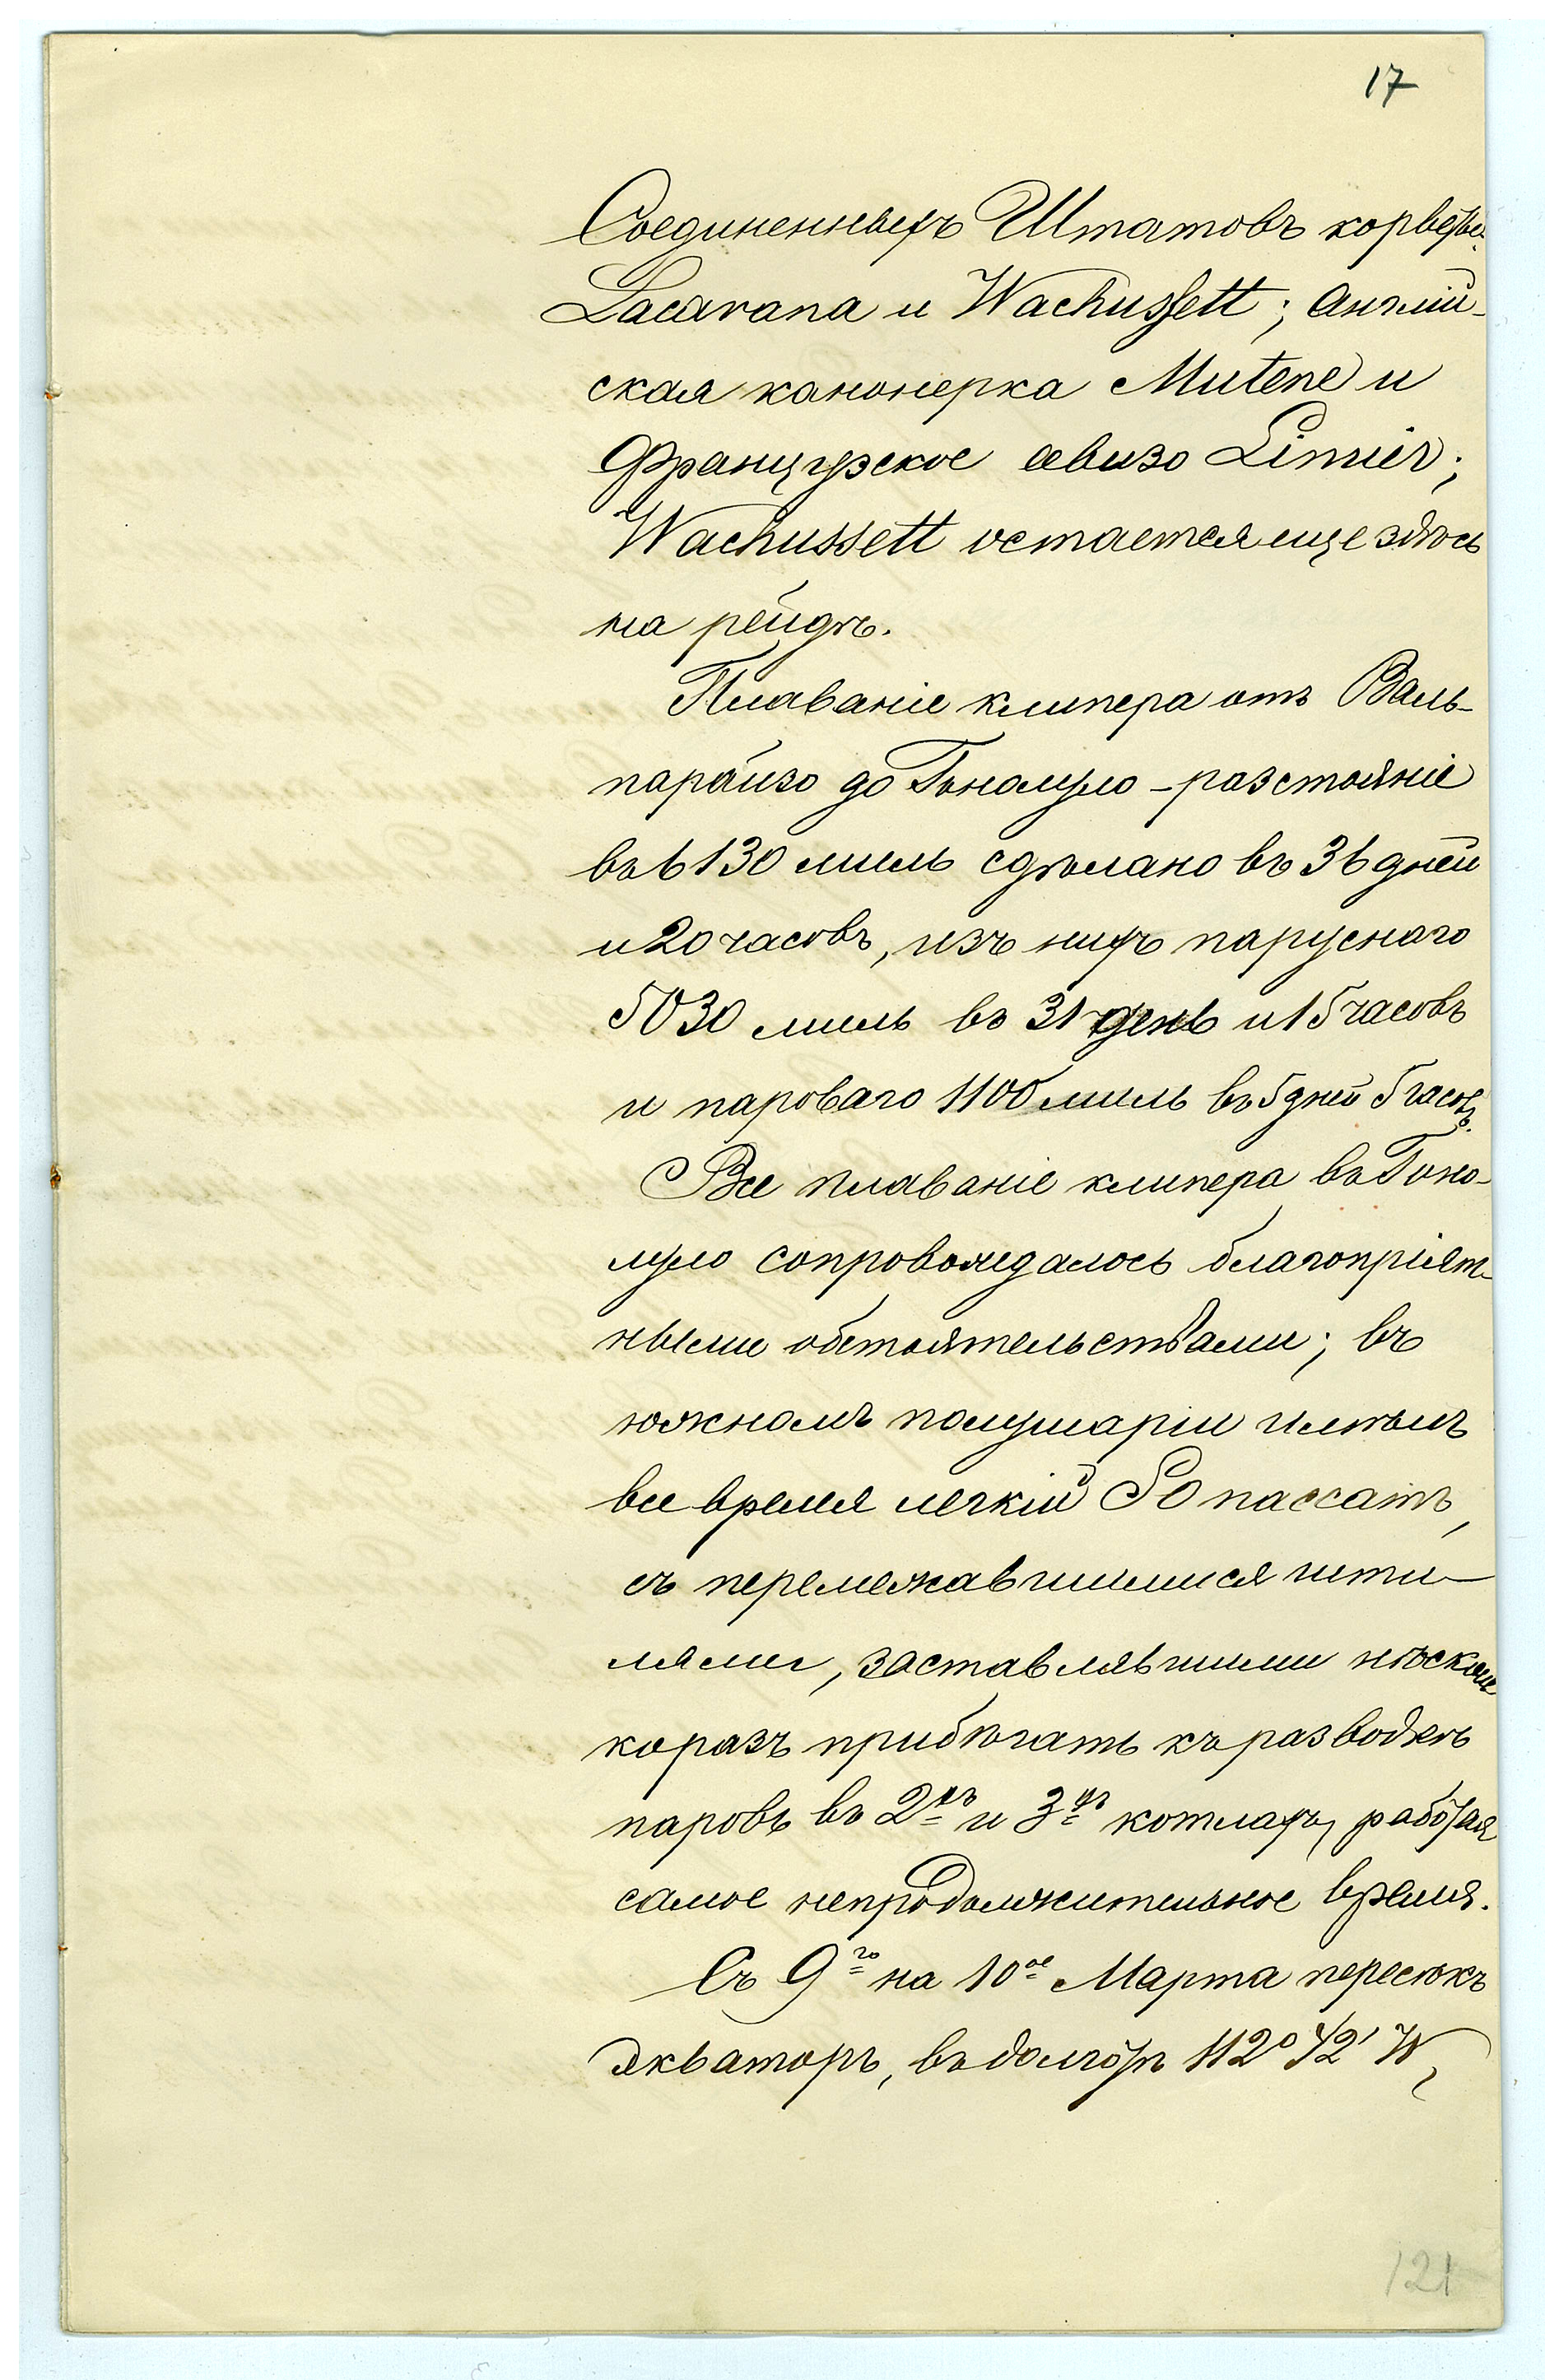 17
Соединенныхъ Штатовъ корветы
Lacavana и Wachussett; Англій-
ская канонерка Mutene и
Французское авизо Limier;
Wachussett остается еще здѣсь
на рейдѣ.
Плаваніе клипера отъ Валь-
парайзо до Гонолуло – разстояніе
въ 6130 миль сдѣлано въ 36 дней
и 20 часовъ, изъ нихъ паруснаго
5030 миль въ 31 день и 15 часовъ
и пароваго 1100 миль въ 5 дней 5 часовъ.
Все плаваніе клипера въ Гоно-
луло сопровождалось благопріят-
ными обстоятельствами; въ
южномъ полушаріи имѣлъ
все время легкій SO пассатъ,
съ перемежавшимися шти-
лями, заставлявшими нѣсколь
ко разъ прибѣгать къ разводкѣ
паровъ въ 2хъ и 3хъ котлахъ, работая
самое непродолжительное время.
Съ 9го на 10ое Марта пересѣкъ
экваторъ, въ долготѣ 112° 42' W,
121